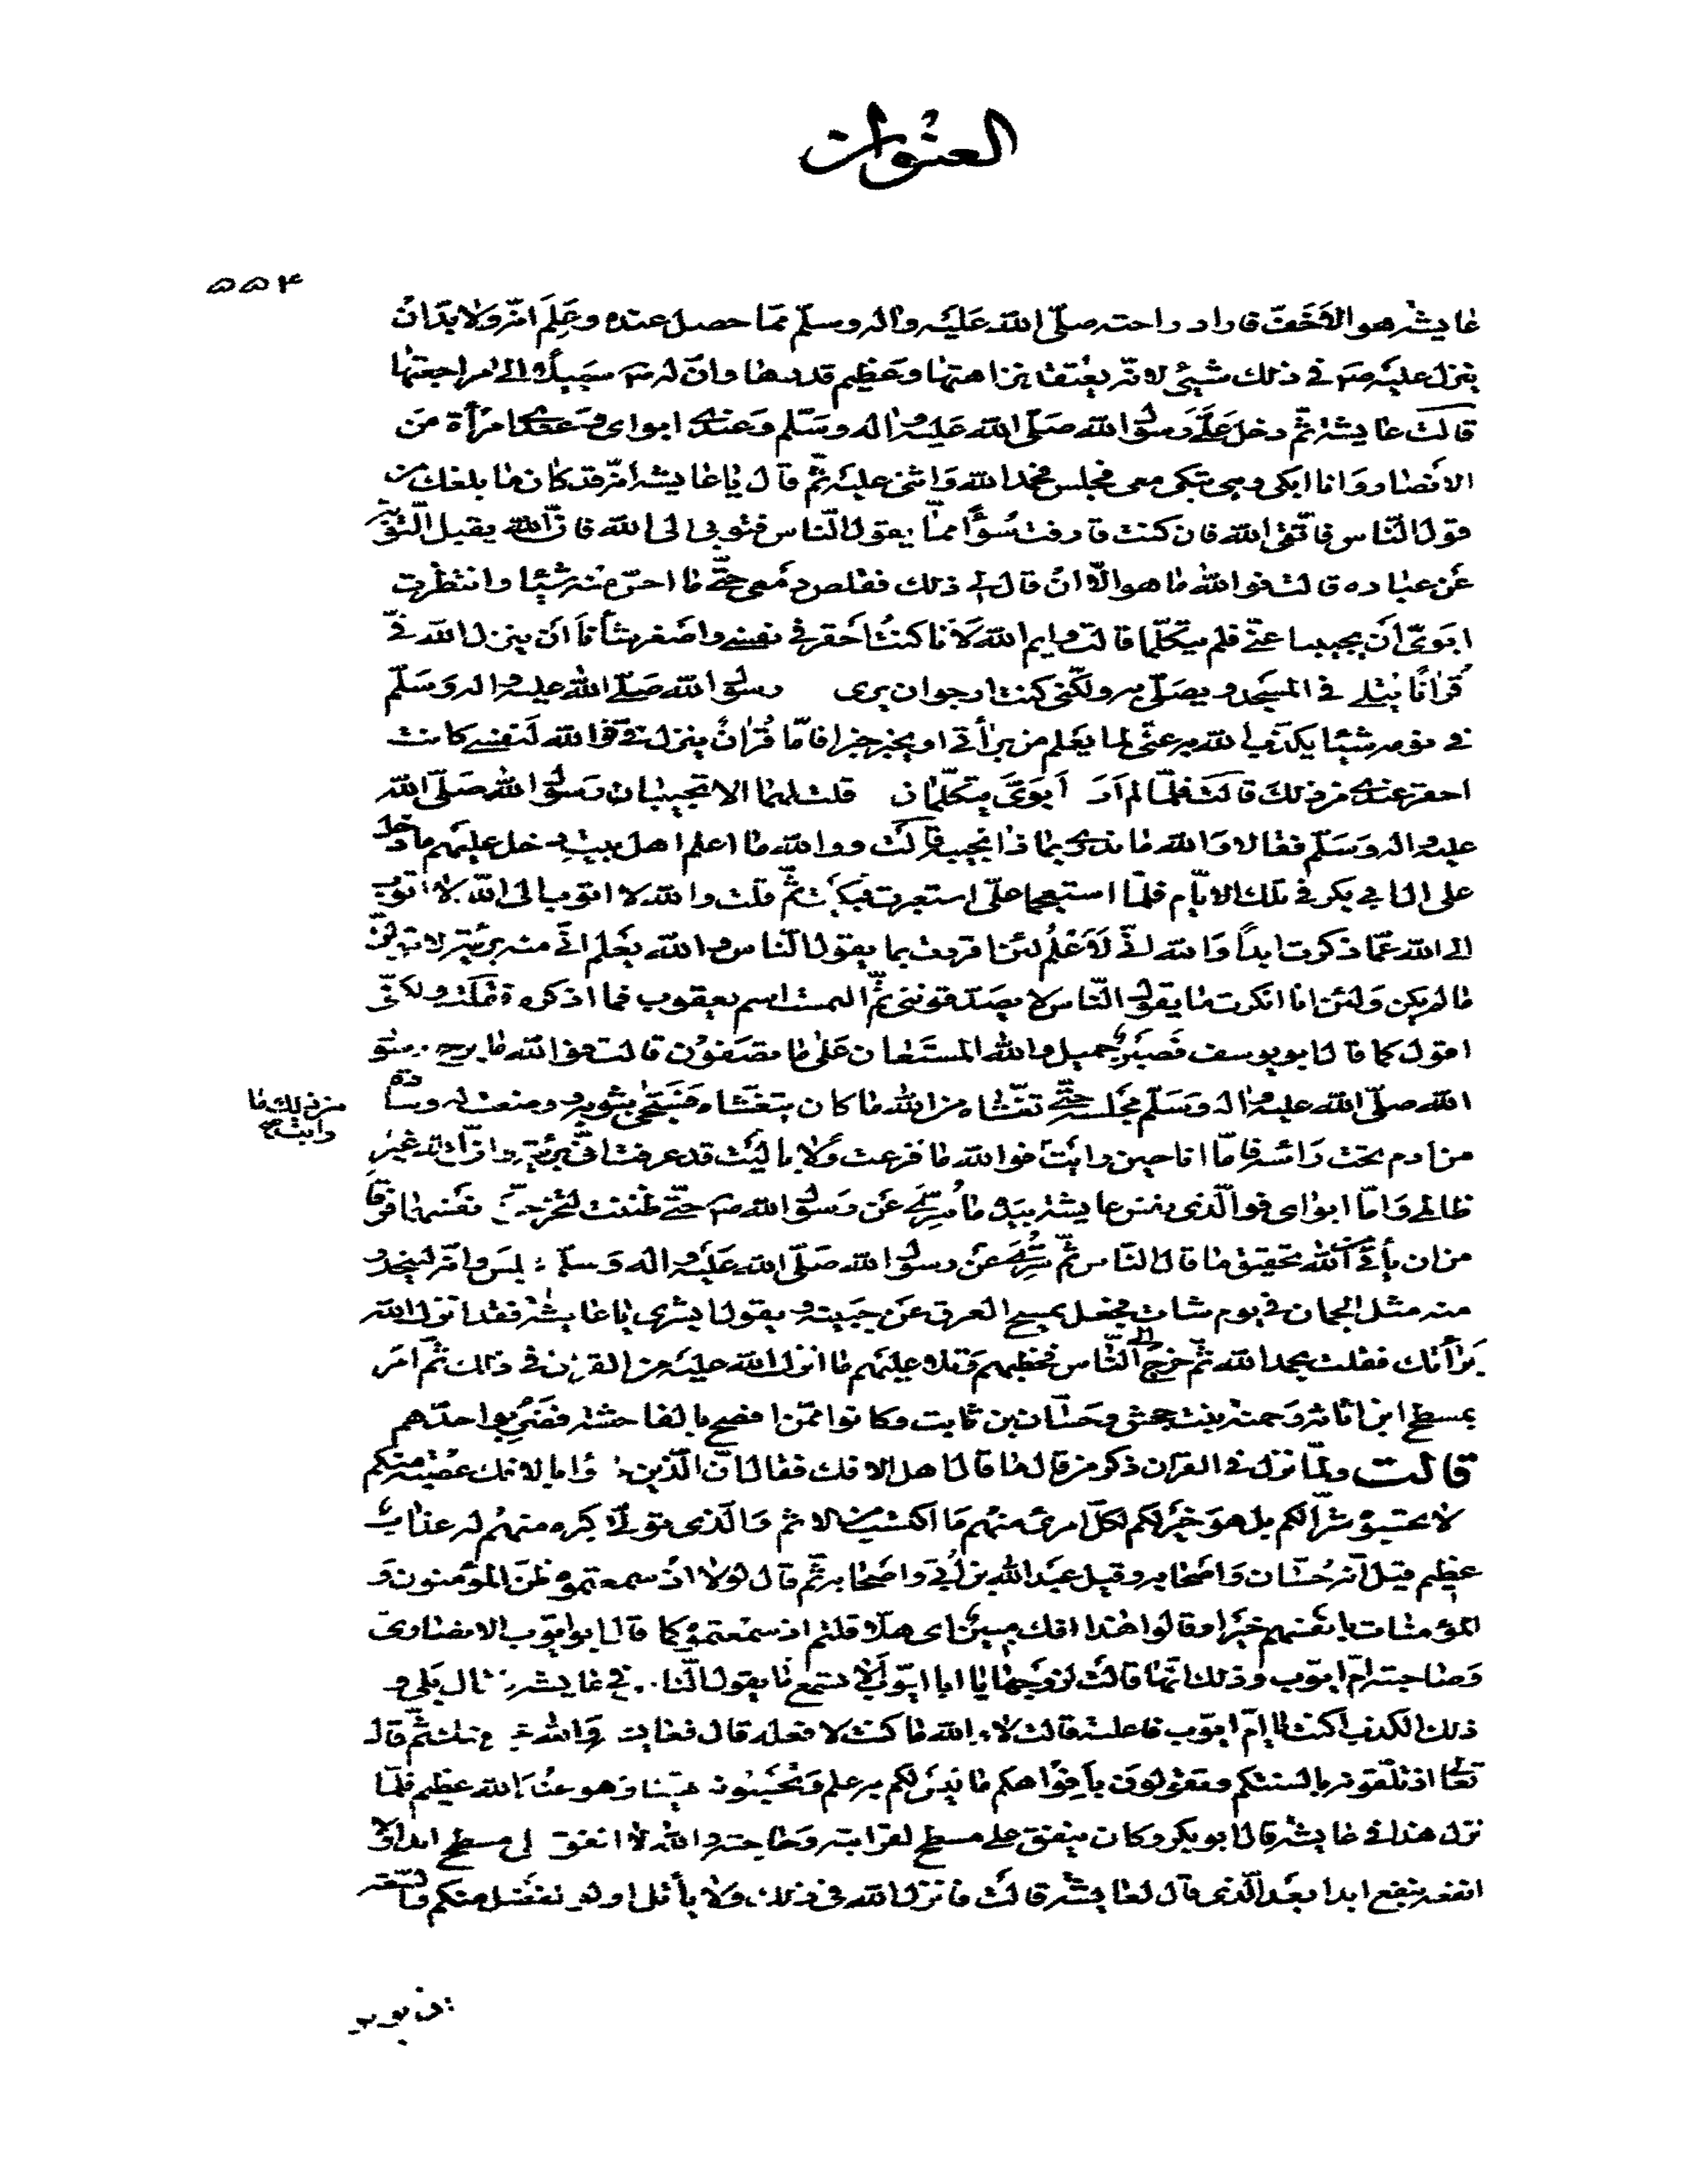 العنوان
٥٥٤
عايشه هو الاخف فاراد راحته صلّى الله عليه واله وسلّم ممّا حصل عنده وعلم انّه ولا بدّ ان
ينزل عليه صم في ذلك شيئ لانّه يعتقد نزاهتها وعظيم قدرها وانّ له صم سبيلا الى مراجعتها
قالت عايشه ثمّ دخل عليّ رسول الله صلّى الله عليه واله وسلّم وعندي ابواي وعندي امرأة من
الانصار وانا ابكي وهي تبكي معي فجلس فحمد الله واثنى عليه ثمّ قال يا عايشه انّه قد كان ما بلغك من
قول النّاس فاتّقي الله فان كنت قارفت سوًا ممّا يقول النّاس فتوبي الى الله فانّ الله يقبل التوبة
عن عباده قالت فوالله ما هو الّا ان قال لي ذلك فقلص دمعي حتّى ما احسّ منه شيئا وانتظرت
ابويّ ان يجيبا عنّي فلم يتكلّما قالت وايم الله لانا كنت احقر في نفسي واصغر شأنا ان ينزل الله فيّ
قرانا يتلى في المسجد ويصلّى به ولكنّي كنت ارجو ان يرى رسول الله صلّى الله عليه واله وسلّم
في نومه شيئا يكذّب الله به عنّي لما يعلم من برأتي او يخبر خبرا فامّا قران ينزل فيّ فوالله لنفسي كانت
احقر عندي من ذلك قالت فلمّا لم ار ابويّ يتكلّمان قلت لهما الا تجيبان رسول الله صلّى الله
عليه واله وسلّم فقالا والله ما ندري بماذا نجيبه قالت ووالله ما اعلم اهل بيت دخل عليهم ما دخل
على ال ابي بكر في تلك الايّام فلمّا استعجما عليّ استعبرت فبكيت ثمّ قلت والله لا اتوب الى الله لا اتوب
الى الله عمّا ذكرت ابدا والله انّي لاعلم لئن اقررت بما يقول النّاس والله يعلم انّي منه بريئة لاقولنّ
ما لم يكن ولئن انا انكرت ما يقول النّاس لا يصدّقونني ثمّ التمست اسم يعقوب فما اذكره فقلت ولكنّي
اقول كما قال ابو يوسف فصبر جميل والله المستعان على ما تصفون قالت فوالله ما برح رسول
الله صلّى الله عليه واله وسلّم مجلسه حتّى تغشّاه من الله ما كان يتغشّاه فسجّي بثوبه ووضعت له وسادة
من ذلك ما
رايت صح
من ادم تحت رأسه فامّا انا حين رايت فوالله ما فزعت ولا باليت قد عرفت انّي بريئة وانّ الله غير
ظالمي وامّا ابواي فوالّذي نفس عايشه بيده ما سرّي عن رسول الله صم حتّى ظننت لتخرجنّ نفسهما فرقا
من ان يأتي من الله تحقيق ما قال النّاس ثمّ سرّي عن رسول الله صلّى الله عليه واله وسلّم فجلس وانّه ليتحدر
منه مثل الجمان في يوم شات فجعل يمسح العرق عن جبينه ويقول ابشري يا عايشه فقد انزل الله
برأتك فقلت بحمد الله ثمّ خرج الى النّاس فخطبهم وتلا عليهم ما انزل الله عليه من القران في ذلك ثمّ امر
بمسطح ابن اثاثه وحمنه بنت جحش وحسّان بن ثابت وكانوا ممّن افصح بالفاحشه فضربوا حدّهم
قالت ولمّا نزل في القران ذكر من قال ما قال اهل الافك فقال انّ الّذين جاؤا بالافك عصبة منكم
لا تحسبوه شرّا لكم بل هو خير لكم لكلّ امرئ منهم ما اكتسب من الاثم والّذي تولّى كبره منهم له عذاب
عظيم قيل انّه حسّان واصحابه وقيل عبد الله بن ابيّ واصحابه ثمّ قال لولا اذ سمعتموه ظنّ المؤمنون و
المؤمنات بانفسهم خيرا وقالوا هذا افك مبين اي هلّا قلتم اذ سمعتموه كما قال ابو ايّوب الانصاريّ
وصاحبته امّ ايّوب وذلك انّها قالت لزوجها يا ابا ايّوب الا تسمع ما يقول النّاس في عايشه قال بلى و
ذلك الكذب اكنت يا امّ ايّوب فاعلته قالت لا والله ما كنت لافعله قال فعايشه والله خير منك ثمّ قال
تعالى اذ تلقّونه بالسنتكم وتقولون بافواهكم ما ليس لكم به علم وتحسبونه هيّنا وهو عند الله عظيم فلمّا
نزل هذا في عايشه قال ابو بكر وكان ينفق على مسطح لقرابته وحاجته والله لا انفق على مسطح ابدا ولا
انفعه بنفع ابدا بعد الّذي قال لعايشه قالت فانزل الله في ذلك ولا يأتل اولو الفضل منكم والسّعة
ان يؤتوا